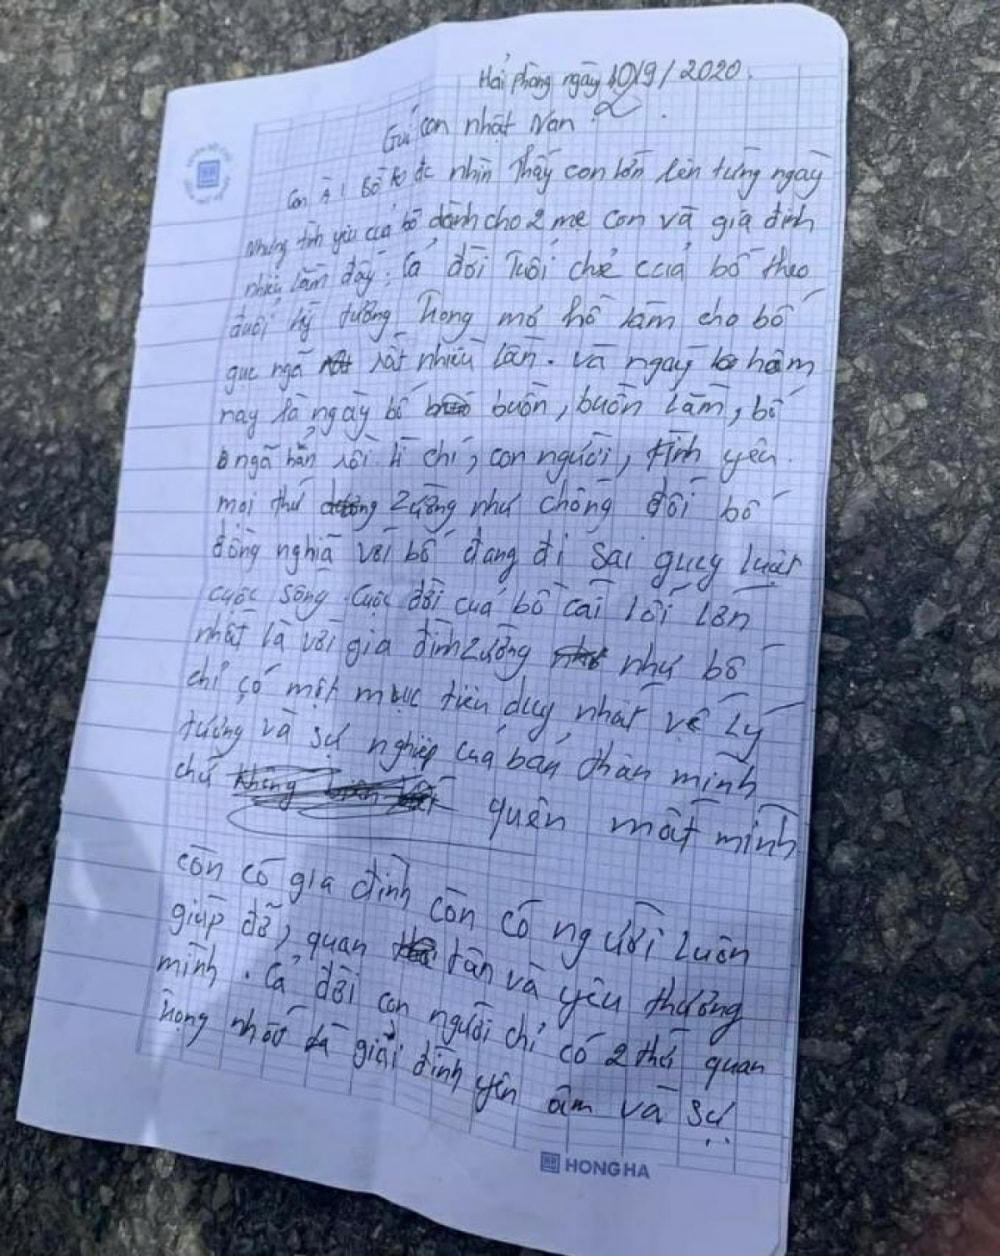 Hải phòng ngày 10/9/2020.
Gửi con nhật Nan
Con À! Bố k đc nhìn Thấy con lớn lên từng ngày
Nhưng tình yêu của bố dành cho 2 mẹ con và gia đình
nhiều lắm đấy. Cả đời Tuổi chẻ của bố theo
đuổi lý tưởng trong mơ hồ làm cho bố
gục ngã rất nhiều lần. và ngay hôm
nay là ngày bố buồn, buồn lắm, bố
ngã hẳn rồi lí chí, con người, tình yêu.
mọi thứ zường như chống đối bố
đồng nghĩa với bố đang đi sai quy luật
cuộc sống. Cuộc đời của bố cái lỗi lớn
nhất là với gia đình zường như bố
chỉ có một mục tiêu duy nhất về lý
tưởng và sự nghiệp của bản thân mình
chứ quên mất mình
còn có gia đình còn có người luôn
giúp đỡ, quan tân và yêu thương
mình. Cả đời con người chỉ có 2 thứ quan
trọng nhất là giải đình yên ấm và sự
HONG HA